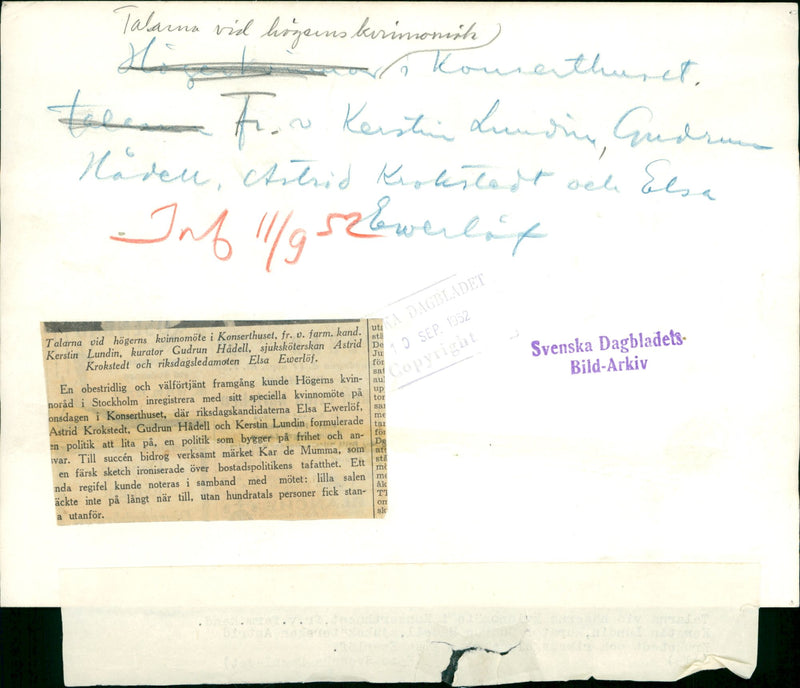 Talarna vid högerns kvinnomöte
i Konserthuset.
Fr. v Kerstin Lundin, Gudrun
Hådell, Astrid Krokstedt och Elsa
Ewerlöf
Inf 11/9 52
DAGBLADET
SEP. 1952
Copyright
Svenska Dagbladets-
Bild-Arkiv
Talarna vid högerns kvinnomöte i Konserthuset, fr. v. farm. kand.
Kerstin Lundin, kurator Gudrun Hådell, sjuksköterskan Astrid
Krokstedt och riksdagsledamoten Elsa Ewerlöf.
En obestridlig och välförtjänt framgång kunde Högerns kvin-
noråd i Stockholm inregistrera med sitt speciella kvinnomöte på
onsdagen i Konserthuset, där riksdagskandidaterna Elsa Ewerlöf,
Astrid Krokstedt, Gudrun Hådell och Kerstin Lundin formulerade
en politik att lita på, en politik som bygger på frihet och an-
svar. Till succén bidrog verksamt märket Kar de Mumma, som
en färsk sketch ironiserade över bostadspolitikens tafatthet. Ett
nda regifel kunde noteras i samband med mötet: lilla salen
äckte inte på långt när till, utan hundratals personer fick stan-
a utanför.